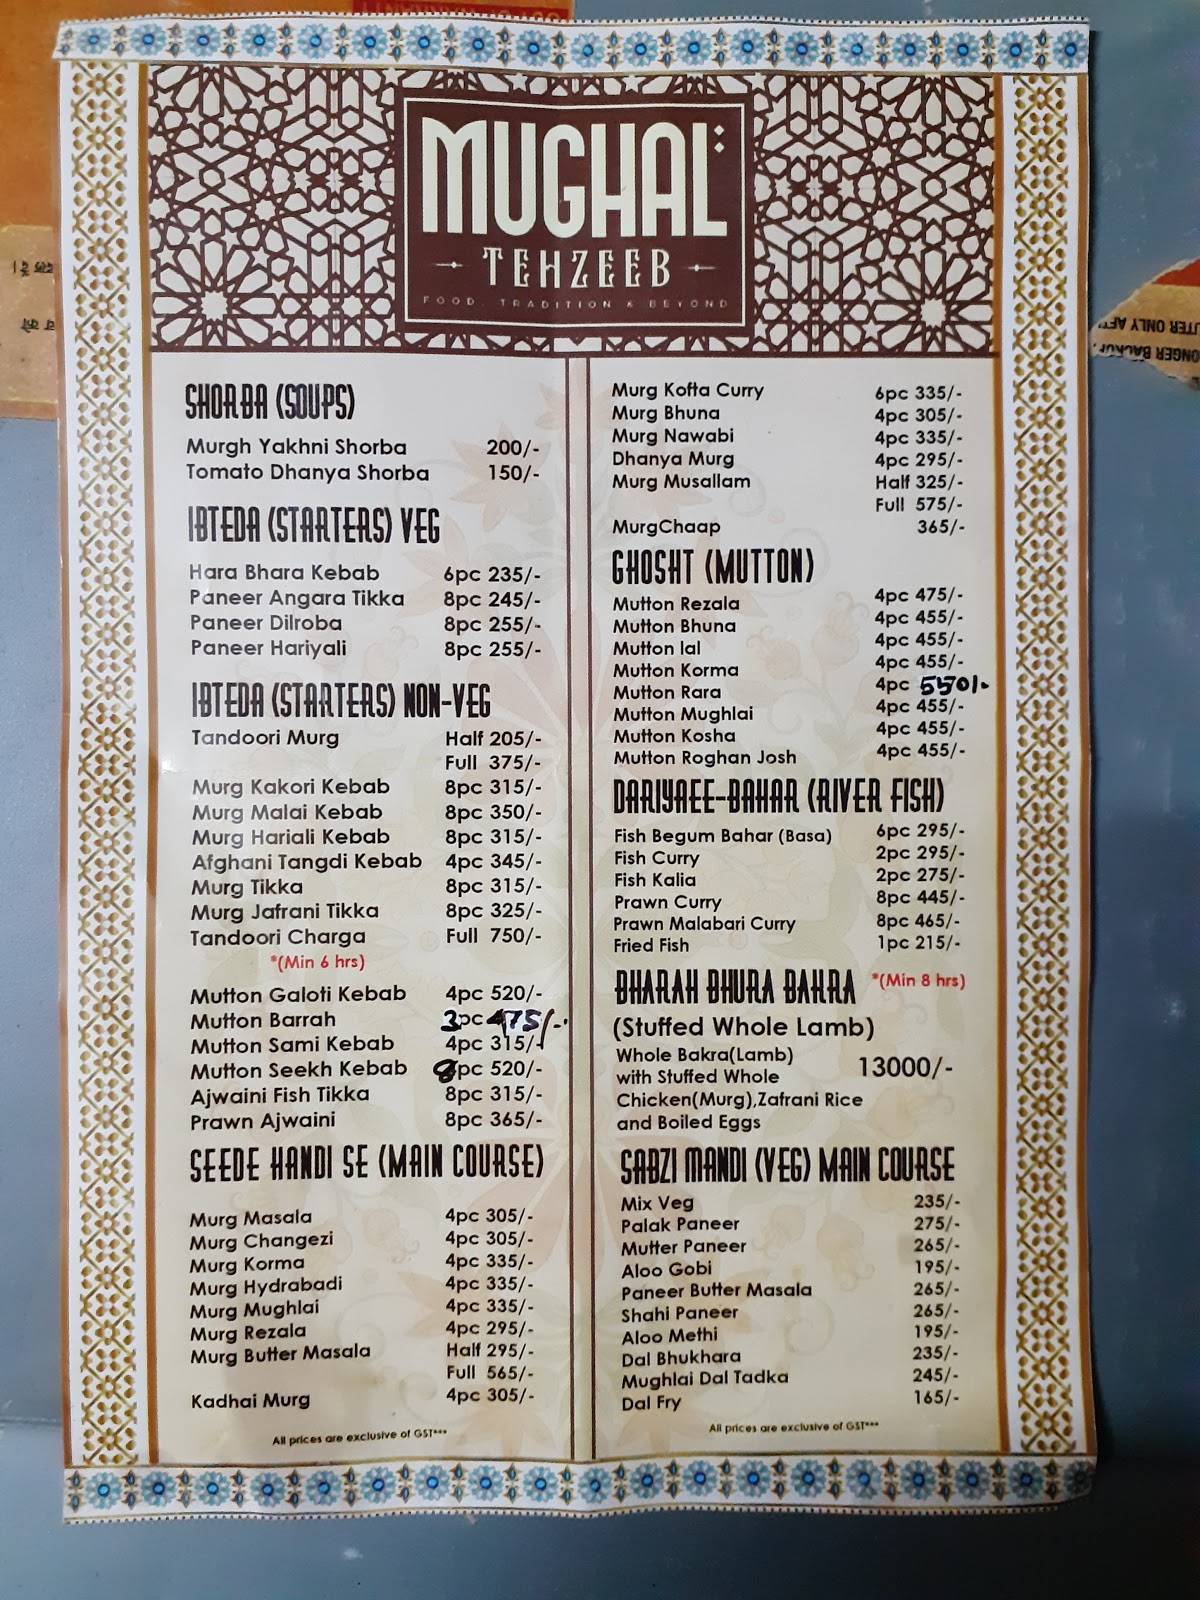 MUGHAL
TEHZEEB
FOOD. TRADITION & BEYOND
SHORBA (SOUPS)
Murgh Yakhni Shorba 200/-
Tomato Dhanya Shorba 150/-
IBTEDA (STARTERS) VEG
Hara Bhara Kebab 6pc 235/-
Paneer Angara Tikka 8pc 245/-
Paneer Dilroba 8pc 255/-
Paneer Hariyali 8pc 255/-
IBTEDA (STARTERS) NON-VEG
Tandoori Murg Half 205/-
Full 375/-
Murg Kakori Kebab 8pc 315/-
Murg Malai Kebab 8pc 350/-
Murg Hariali Kebab 8pc 315/-
Afghani Tangdi Kebab 4pc 345/-
Murg Tikka 8pc 315/-
Murg Jafrani Tikka 8pc 325/-
Tandoori Charga Full 750/-
*(Min 6 hrs)
Mutton Galoti Kebab 4pc 520/-
Mutton Barrah 3pc 475/-
Mutton Sami Kebab 4pc 315/-
Mutton Seekh Kebab 8pc 520/-
Ajwaini Fish Tikka 8pc 315/-
Prawn Ajwaini 8pc 365/-
SEEDE HANDI SE (MAIN COURSE)
Murg Masala 4pc 305/-
Murg Changezi 4pc 305/-
Murg Korma 4pc 335/-
Murg Hydrabadi 4pc 335/-
Murg Mughlai 4pc 335/-
Murg Rezala 4pc 295/-
Murg Butter Masala Half 295/-
Full 565/-
Kadhai Murg 4pc 305/-
All prices are exclusive of GST***
Murg Kofta Curry 6pc 335/-
Murg Bhuna 4pc 305/-
Murg Nawabi 4pc 335/-
Dhanya Murg 4pc 295/-
Murg Musallam Half 325/-
Full 575/-
MurgChaap 365/-
GHOSHT (MUTTON)
Mutton Rezala 4pc 475/-
Mutton Bhuna 4pc 455/-
Mutton lal 4pc 455/-
Mutton Korma 4pc 455/-
Mutton Rara 4pc 550/-
Mutton Mughlai 4pc 455/-
Mutton Kosha 4pc 455/-
Mutton Roghan Josh 4pc 455/-
DARIYAEE-BAHAR (RIVER FISH)
Fish Begum Bahar (Basa) 6pc 295/-
Fish Curry 2pc 295/-
Fish Kalia 2pc 275/-
Prawn Curry 8pc 445/-
Prawn Malabari Curry 8pc 465/-
Fried Fish 1pc 215/-
BHARAH BHURA BAKRA *(Min 8 hrs)
(Stuffed Whole Lamb)
Whole Bakra(Lamb)
with Stuffed Whole 13000/-
Chicken(Murg),Zafrani Rice
and Boiled Eggs
SABZI MANDI (VEG) MAIN COURSE
Mix Veg 235/-
Palak Paneer 275/-
Mutter Paneer 265/-
Aloo Gobi 195/-
Paneer Butter Masala 265/-
Shahi Paneer 265/-
Aloo Methi 195/-
Dal Bhukhara 235/-
Mughlai Dal Tadka 245/-
Dal Fry 165/-
All prices are exclusive of GST***
ONLY
BACKUP